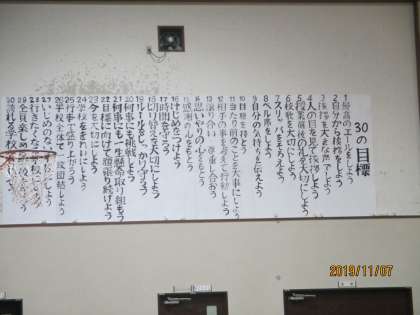 30の目標
1 最高のエールをしよう
2 自分から挨拶をしよう
3 挨拶を大きな声でしよう
4 人の目を見て挨拶しよう
5 授業前後の礼を大切にしよう
6 校歌を大切にしよう
7 スリッパをそろえよう
8 ベル席をしよう
9 自分の気持ちを伝えよう
10 目標を持とう
11 当たり前のことを大事にしよう
12 相手の事を考えて行動しよう
13 譲り合い、尊重し合おう
14 思いやりの心をもとう
15 感謝の心をもとう
16 けじめをつけよう
17 時間を守ろう
18 を大切にしよう
19 ルールをしっかり守ろう
20 何事にも挑戦しよう
21 何事にも一生懸命取り組もう
22 目標に向けて頑張り続けよう
23 今を大切にしよう
24 学校をきれいにしよう
25 行事で盛り上がろう
26 学校全体で一致団結しよう
27 いじめのない学校にしよう
28 行きたくなる学校にしよう
29 全員楽しめる学校にしよう
30 誇れる学校にしよう
2019/11/07